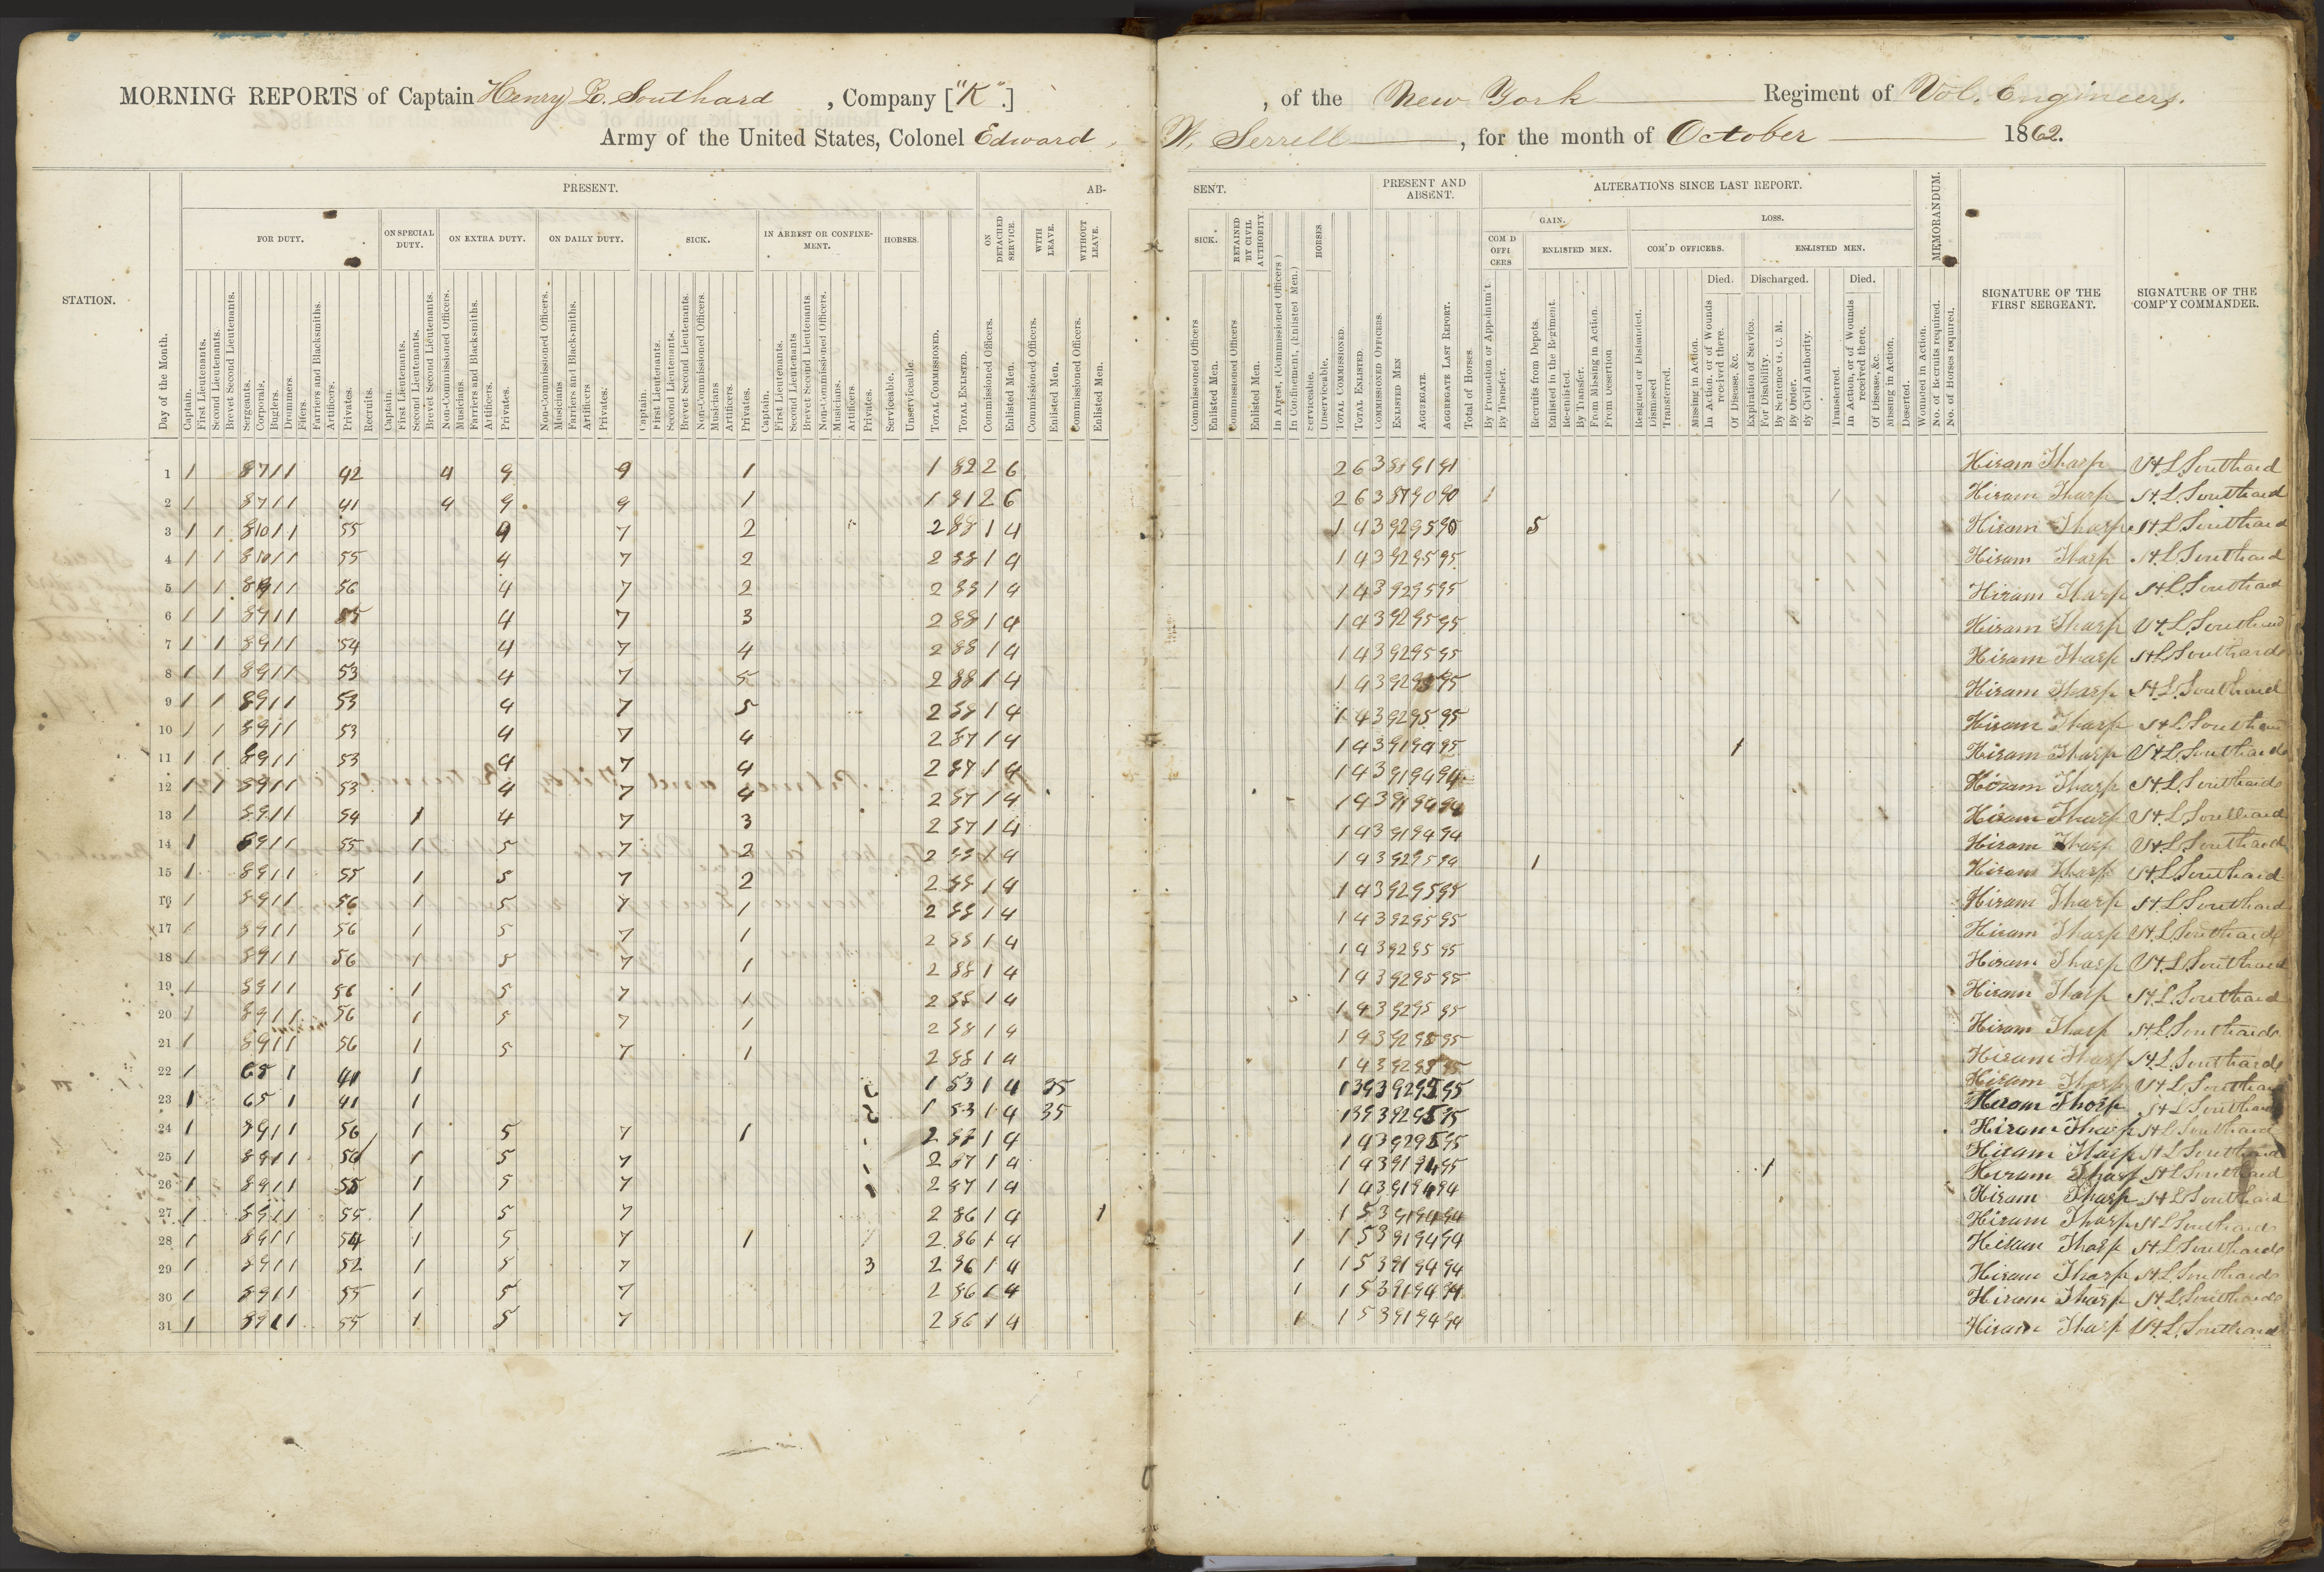 MORNING REPORTS of Captain Henry L. Southard , Company ["K".] , of the New York Regiment of Vol. Engineers.
Army of the United States, Colonel Edward W. Serrell , for the month of October 1862.
PRESENT. AB- SENT. PRESENT AND ABSENT. ALTERATIONS SINCE LAST REPORT. MEMORANDUM.
FOR DUTY. ON SPECIAL DUTY. ON EXTRA DUTY. ON DAILY DUTY. SICK. IN ARREST OR CONFINEMENT. HORSES. ON DETACHED SERVICE. WITH LEAVE. WITHOUT LEAVE. SICK. RETAINED BY CIVIL AUTHORITY. HORSES. GAIN. LOSS.
COM'D OFFICERS ENLISTED MEN. COM'D OFFICERS. ENLISTED MEN.
Died. Discharged. Died.
STATION. Day of the Month. Captain. First Lieutenants. Second Lieutenants. Brevet Second Lieutenants. Sergeants. Corporals. Buglers. Drummers. Fifers. Farriers and Blacksmiths. Artificers. Privates. Recruits. Captain. First Lieutenants. Second Lieutenants. Brevet Second Lieutenants. Non-Commissioned Officers. Musicians. Farriers and Blacksmiths. Artificers. Privates. Non-Commissioned Officers. Musicians Farriers and Blacksmiths. Artificers Privates. Captain. First Lieutenants. Second Lieutenants. Brevet Second Lieutenants. Non-Commissioned Officers. Musicians Artificers. Privates. Captain. First Lieutenants. Second Lieutenants Brevet Second Lieutenants Non-Commissioned Officers. Musicians. Artificers Privates. Serviceable. Unserviceable. TOTAL COMMISSIONED. TOTAL ENLISTED. Commissioned Officers. Enlisted Men. Commissioned Officers. Enlisted Men. Commissioned Officers. Enlisted Men.
Commissioned Officers Enlisted Men. Commissioned Officers Enlisted Men. In Arrest, (Commissioned Officers) In Confinement, (Enlisted Men.) Serviceable. Unserviceable. TOTAL COMMISSIONED. TOTAL ENLISTED. COMMISSIONED OFFICERS. ENLISTED MEN AGGREGATE. AGGREGATE LAST REPORT. Total of Horses. By Promotion or Appointm't. By Transfer. Recruits from Depots. Enlisted in the Regiment. Re-enlisted. By Transfer. From Missing in Action. From Desertion Resigned or Disbanded. Dismissed Transferred. Missing in Action. In Action, or of Wounds received there. Of Disease, &c. Expiration of Service. For Disability. By Sentence G. C. M. By Order. By Civil Authority. Transferred. In Action, or of Wounds received there. Of Disease, &c. Missing in Action. Deserted. Wounded in Action. No. of Recruits required. No. of Horses required. SIGNATURE OF THE FIRST SERGEANT. SIGNATURE OF THE COMP'Y COMMANDER.
1 1 8 7 1 1 42 4 9 9 1 1 82 2 6 2 6 3 88 91 91 Hiram Tharp H.L. Southard
2 1 8 7 1 1 41 4 9 9 1 1 81 2 6 2 6 3 87 90 90 1 1 Hiram Tharp H.L. Southard
3 1 1 8 10 1 1 55 4 7 2 2 88 1 4 1 4 3 92 95 90 5 Hiram Tharp H.L. Southard
4 1 1 8 10 1 1 55 4 7 2 2 88 1 4 1 4 3 92 95 95 Hiram Tharp H.L. Southard
5 1 1 8 9 1 1 56 4 7 2 2 88 1 4 1 4 3 92 95 95 Hiram Tharp H.L. Southard
6 1 1 8 9 1 1 55 4 7 3 2 88 1 4 1 4 3 92 95 95 Hiram Tharp H.L. Southard
7 1 1 8 9 1 1 54 4 7 4 2 88 1 4 1 4 3 92 95 95 Hiram Tharp H.L. Southard
8 1 1 8 9 1 1 53 4 7 5 2 88 1 4 1 4 3 92 95 95 Hiram Tharp H.L. Southard
9 1 1 8 9 1 1 53 4 7 5 2 88 1 4 1 4 3 92 95 95 Hiram Tharp H.L. Southard
10 1 1 8 9 1 1 53 4 7 4 2 87 1 4 1 4 3 91 94 95 1 Hiram Tharp H.L. Southard
11 1 1 8 9 1 1 53 4 7 4 2 87 1 4 1 4 3 91 94 94 Hiram Tharp H.L. Southard
12 1 1 8 9 1 1 53 4 7 4 2 87 1 4 1 4 3 91 94 94 Hiram Tharp H.L. Southard
13 1 8 9 1 1 54 1 4 7 3 2 87 1 4 1 4 3 91 94 94 Hiram Tharp H.L. Southard
14 1 8 9 1 1 55 1 5 7 2 2 88 1 4 1 4 3 92 95 94 1 Hiram Tharp H.L. Southard
15 1 8 9 1 1 55 1 5 7 2 2 88 1 4 1 4 3 92 95 95 Hiram Tharp H.L. Southard
16 1 8 9 1 1 56 1 5 7 1 2 88 1 4 1 4 3 92 95 95 Hiram Tharp H.L. Southard
17 1 8 9 1 1 56 1 5 7 1 2 88 1 4 1 4 3 92 95 95 Hiram Tharp H.L. Southard
18 1 8 9 1 1 56 1 5 7 1 2 88 1 4 1 4 3 92 95 95 Hiram Tharp H.L. Southard
19 1 8 9 1 1 56 1 5 7 1 2 88 1 4 1 4 3 92 95 95 Hiram Tharp H.L. Southard
20 1 8 9 1 1 56 1 5 7 1 2 88 1 4 1 4 3 92 95 95 Hiram Tharp H.L. Southard
21 1 8 9 1 1 56 1 5 7 1 2 88 1 4 1 4 3 92 95 95 Hiram Tharp H.L. Southard
22 1 6 5 1 41 1 1 53 1 4 35 1 39 3 92 95 95 Hiram Tharp H.L. Southard
23 1 6 5 1 41 1 1 53 1 4 35 1 39 3 92 95 95 Hiram Tharp H.L. Southard
24 1 8 9 1 1 56 1 5 7 1 2 88 1 4 1 4 3 92 95 95 Hiram Tharp H.L. Southard
25 1 8 9 1 1 56 1 5 7 1 2 87 1 4 1 4 3 91 94 95 1 Hiram Tharp H.L. Southard
26 1 8 9 1 1 55 1 5 7 1 2 87 1 4 1 4 3 91 94 94 Hiram Tharp H.L. Southard
27 1 8 9 1 1 55 1 5 7 2 86 1 4 1 1 5 3 91 94 94 Hiram Tharp H.L. Southard
28 1 8 9 1 1 54 1 5 7 1 2 86 1 4 1 1 5 3 91 94 94 Hiram Tharp H.L. Southard
29 1 8 9 1 1 52 1 5 7 3 2 86 1 4 1 1 5 3 91 94 94 Hiram Tharp H.L. Southard
30 1 8 9 1 1 55 1 5 7 2 86 1 4 1 1 5 3 91 94 94 Hiram Tharp H.L. Southard
31 1 8 9 1 1 55 1 5 7 2 86 1 4 1 1 5 3 91 94 94 Hiram Tharp H.L. Southard